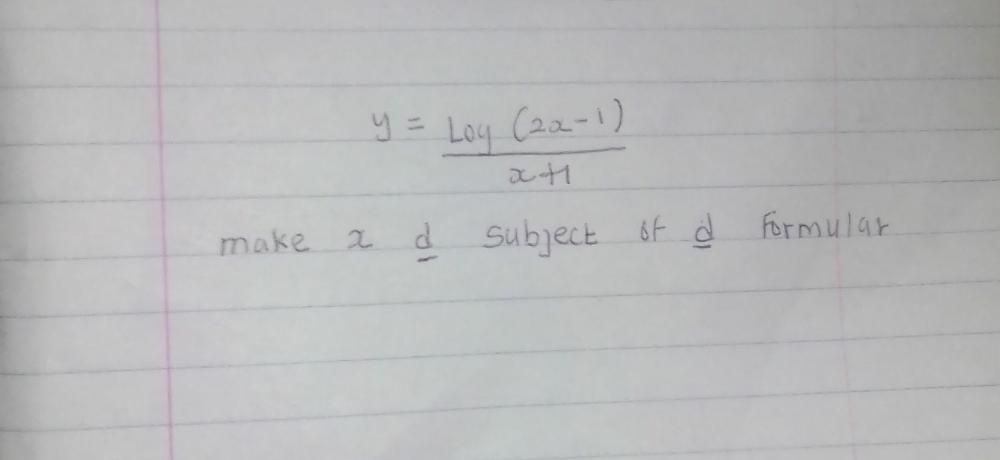 y = Log (2x-1)
x+1
make x d subject of d formular